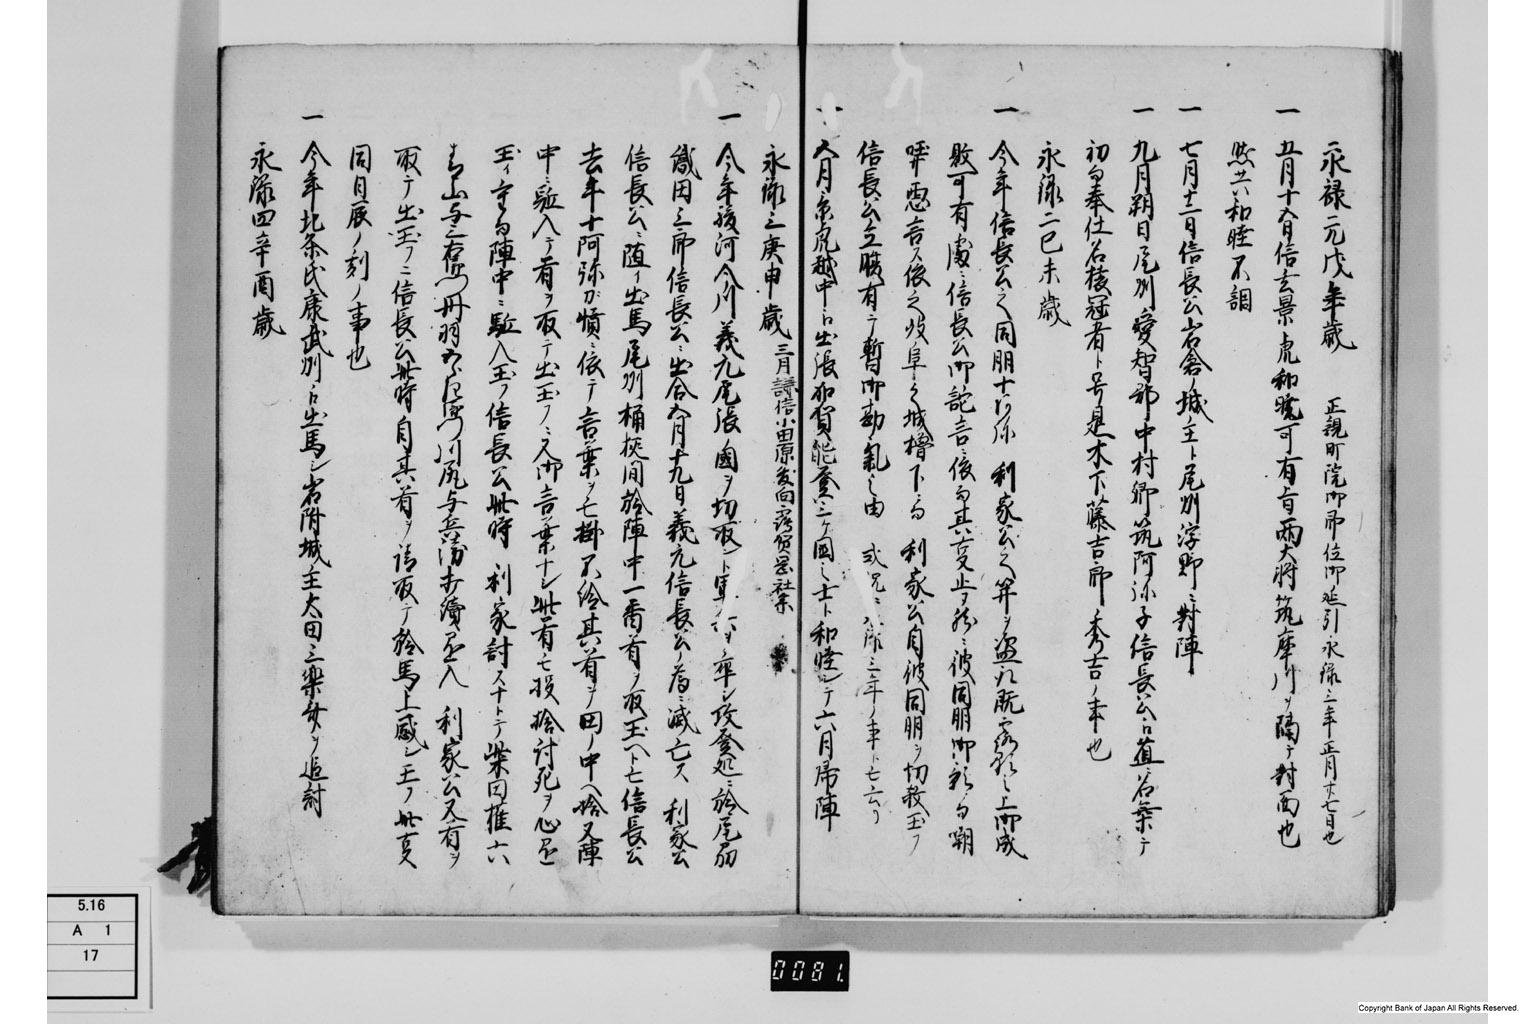 永禄元戊午歳 正親町院御即位御延引永禄三年正月廿七日也
一 五月十五日信玄景虎和睦可有旨両大将筑摩川ヲ隔テ対面也
然共和睦不調
一 七月十二日信長公岩倉ノ城主ト尾州浮野ニ対陣
一 九月朔日尾州愛智郡中村郷筑阿弥子信長公江直ニ名乗テ
初而奉仕名稜冠者ト号是木下藤吉郎秀吉ノ事也
永禄二己未歳
一 今年信長公之同朋十阿弥 利家公之笄ヲ盗取既ニ露顕之上御成
敗可有處ニ信長公御詫言ニ依而其事止ヲ然ニ彼同朋御影ニ而嘲
哢悪言ス依之岐阜之城櫓下ニ而 利家公自彼同朋ヲ切殺玉フ
信長公立腹有テ暫御勘氣之由 或説ニ永禄三年ノ事トモ云リ
一 五月景虎越中江出張加賀能登三ケ国之士ト和睦シテ六月帰陣
永禄三庚申歳 三月謙信小田原発向鶴岡社参
一 今年駿河今川義元尾張國ヲ切取ント軍兵ヲ率シ攻登処ニ於尾州
織田三郎信長公ニ出合五月十九日義元信長公ノ為ニ滅亡ス 利家公
信長公ニ随イ出馬尾州桶狭間於陣中一番首ヲ取玉ヘトモ信長公
去年十阿弥カ憤ニ依テ言葉ヲモ掛不給其首ヲ田ノ中ヘ捨又陣
中ニ駈入テ首ヲ取テ出玉フニ又御言葉ナシ此首モ投捨討死ヲ心定
玉イ又陣中ニ駈入玉フ信長公此時 利家討スナトテ柴田権六
青山与三右衛門丹羽五郎左衛門川尻与兵衛相續進入 利家公又首ヲ
取テ出玉フニ信長公此時自其首ヲ請取テ於馬上感シ玉フ此事
同日辰ノ刻ノ事也
一 今年北条氏康武州江出馬シ岩附城主太田三楽斎ヲ追討
永禄四辛酉歳
5.16
A 1
17
0081.
Copyright Bank of Japan All Rights Reserved.